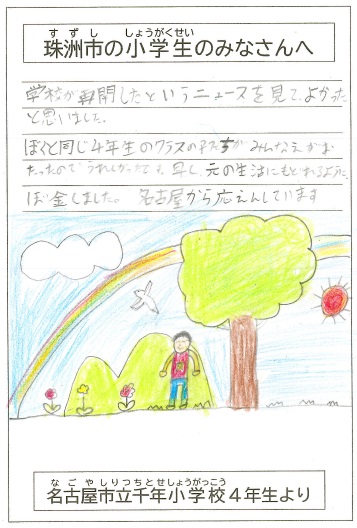 すずし しょうがくせい
珠洲市の小学生のみなさんへ
学校が再開したというニュースを見て、よかった
と思いました。
ぼくと同じ4年生のクラスの子たちが みんなえがお
だったのでうれしかったです。早く、元の生活にもどれるように、
ぼ金しました。 名古屋から応えんしています
なごやしりつちとせしょうがっこう
名古屋市立千年小学校4年生より